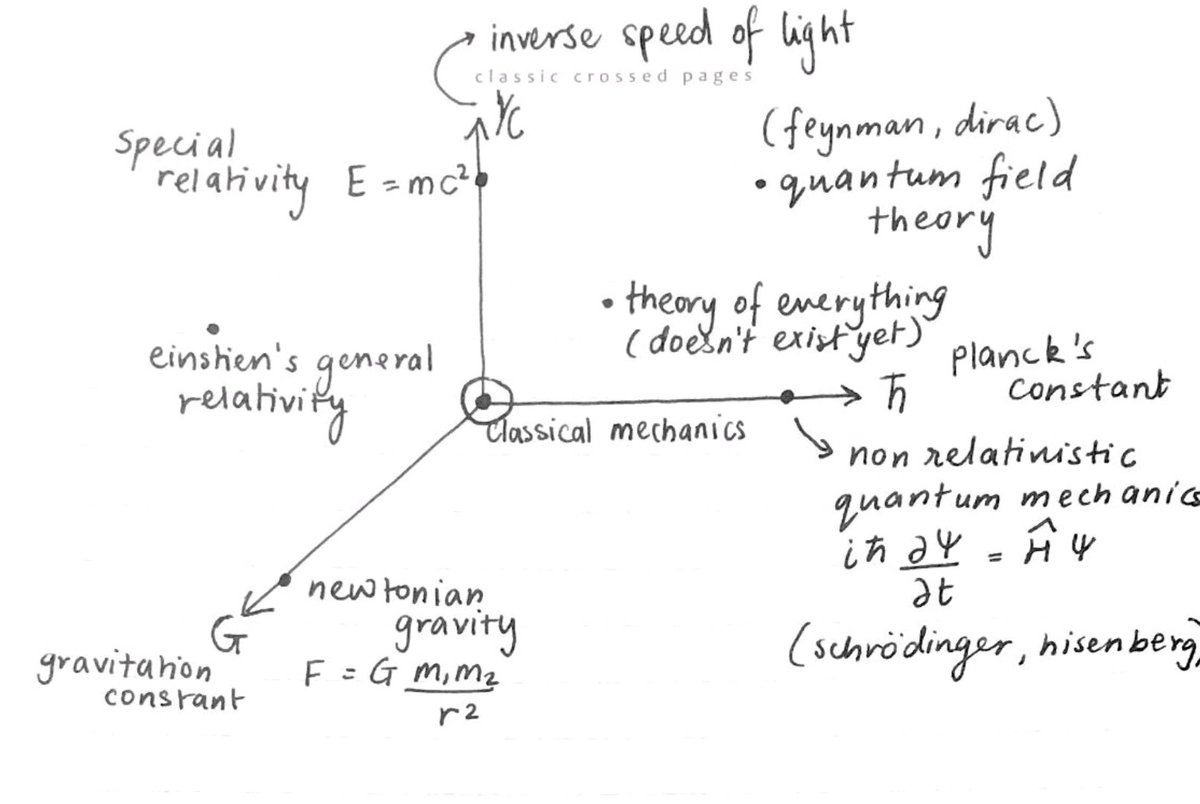 inverse speed of light
classic crossed pages
1/c
(feynman, dirac)
• quantum field
theory
Special
relativity E = mc²
• theory of everything
(doesn't exist yet)
einshien's general
relativity
ħ
planck's
constant
Classical mechanics
non relatinistic
quantum mechanics
iħ ∂Ψ/∂t = Ĥ Ψ
(schrödinger, hisenberg)
newtonian
gravity
F = G m₁m₂/r²
G
gravitation
constant